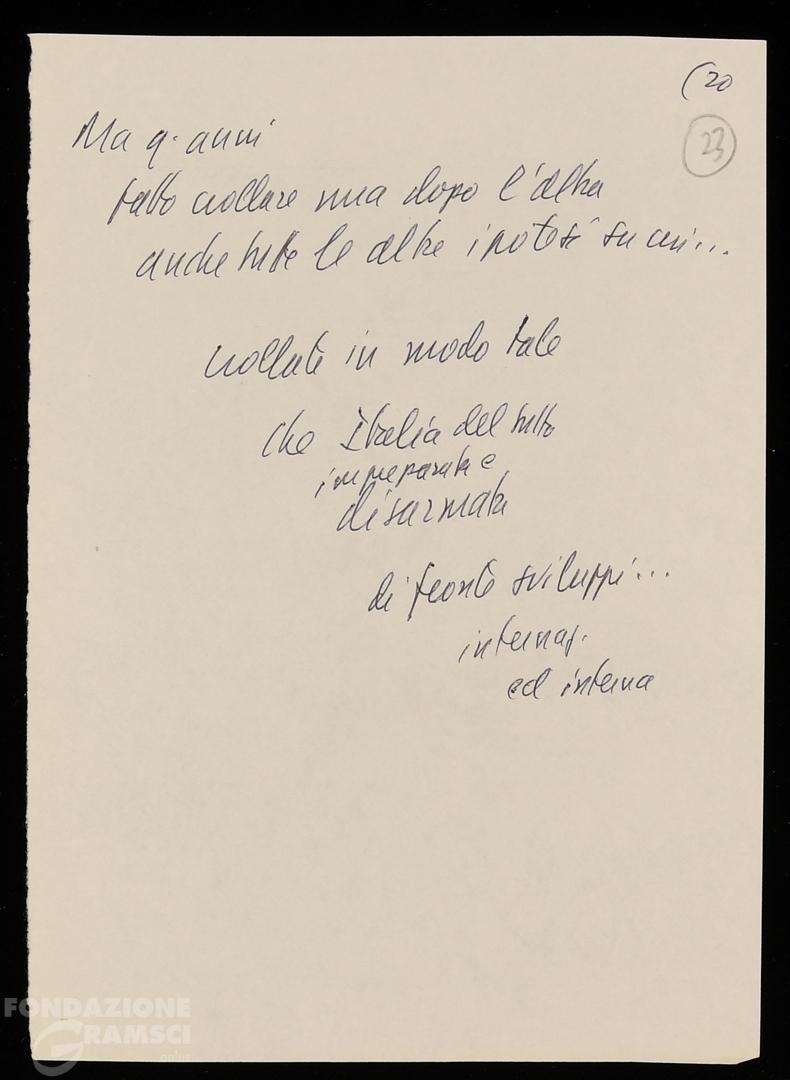 (20
23
Ma q. anni
fatto crollare una dopo l'altra
anche tutte le altre ipotesi su cui...
crollate in modo tale
che Italia del tutto
impreparata e
disarmata
di fronte sviluppi...
internaz.
ed interna
FONDAZIONE
GRAMSCI
onlus